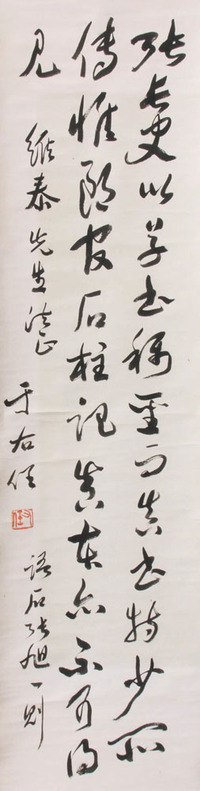 張長史以草書稱聖而真書特少所
傳惟郎官石柱記真本亦不可得
見
維泰先生法正
于右任
語石張旭一則